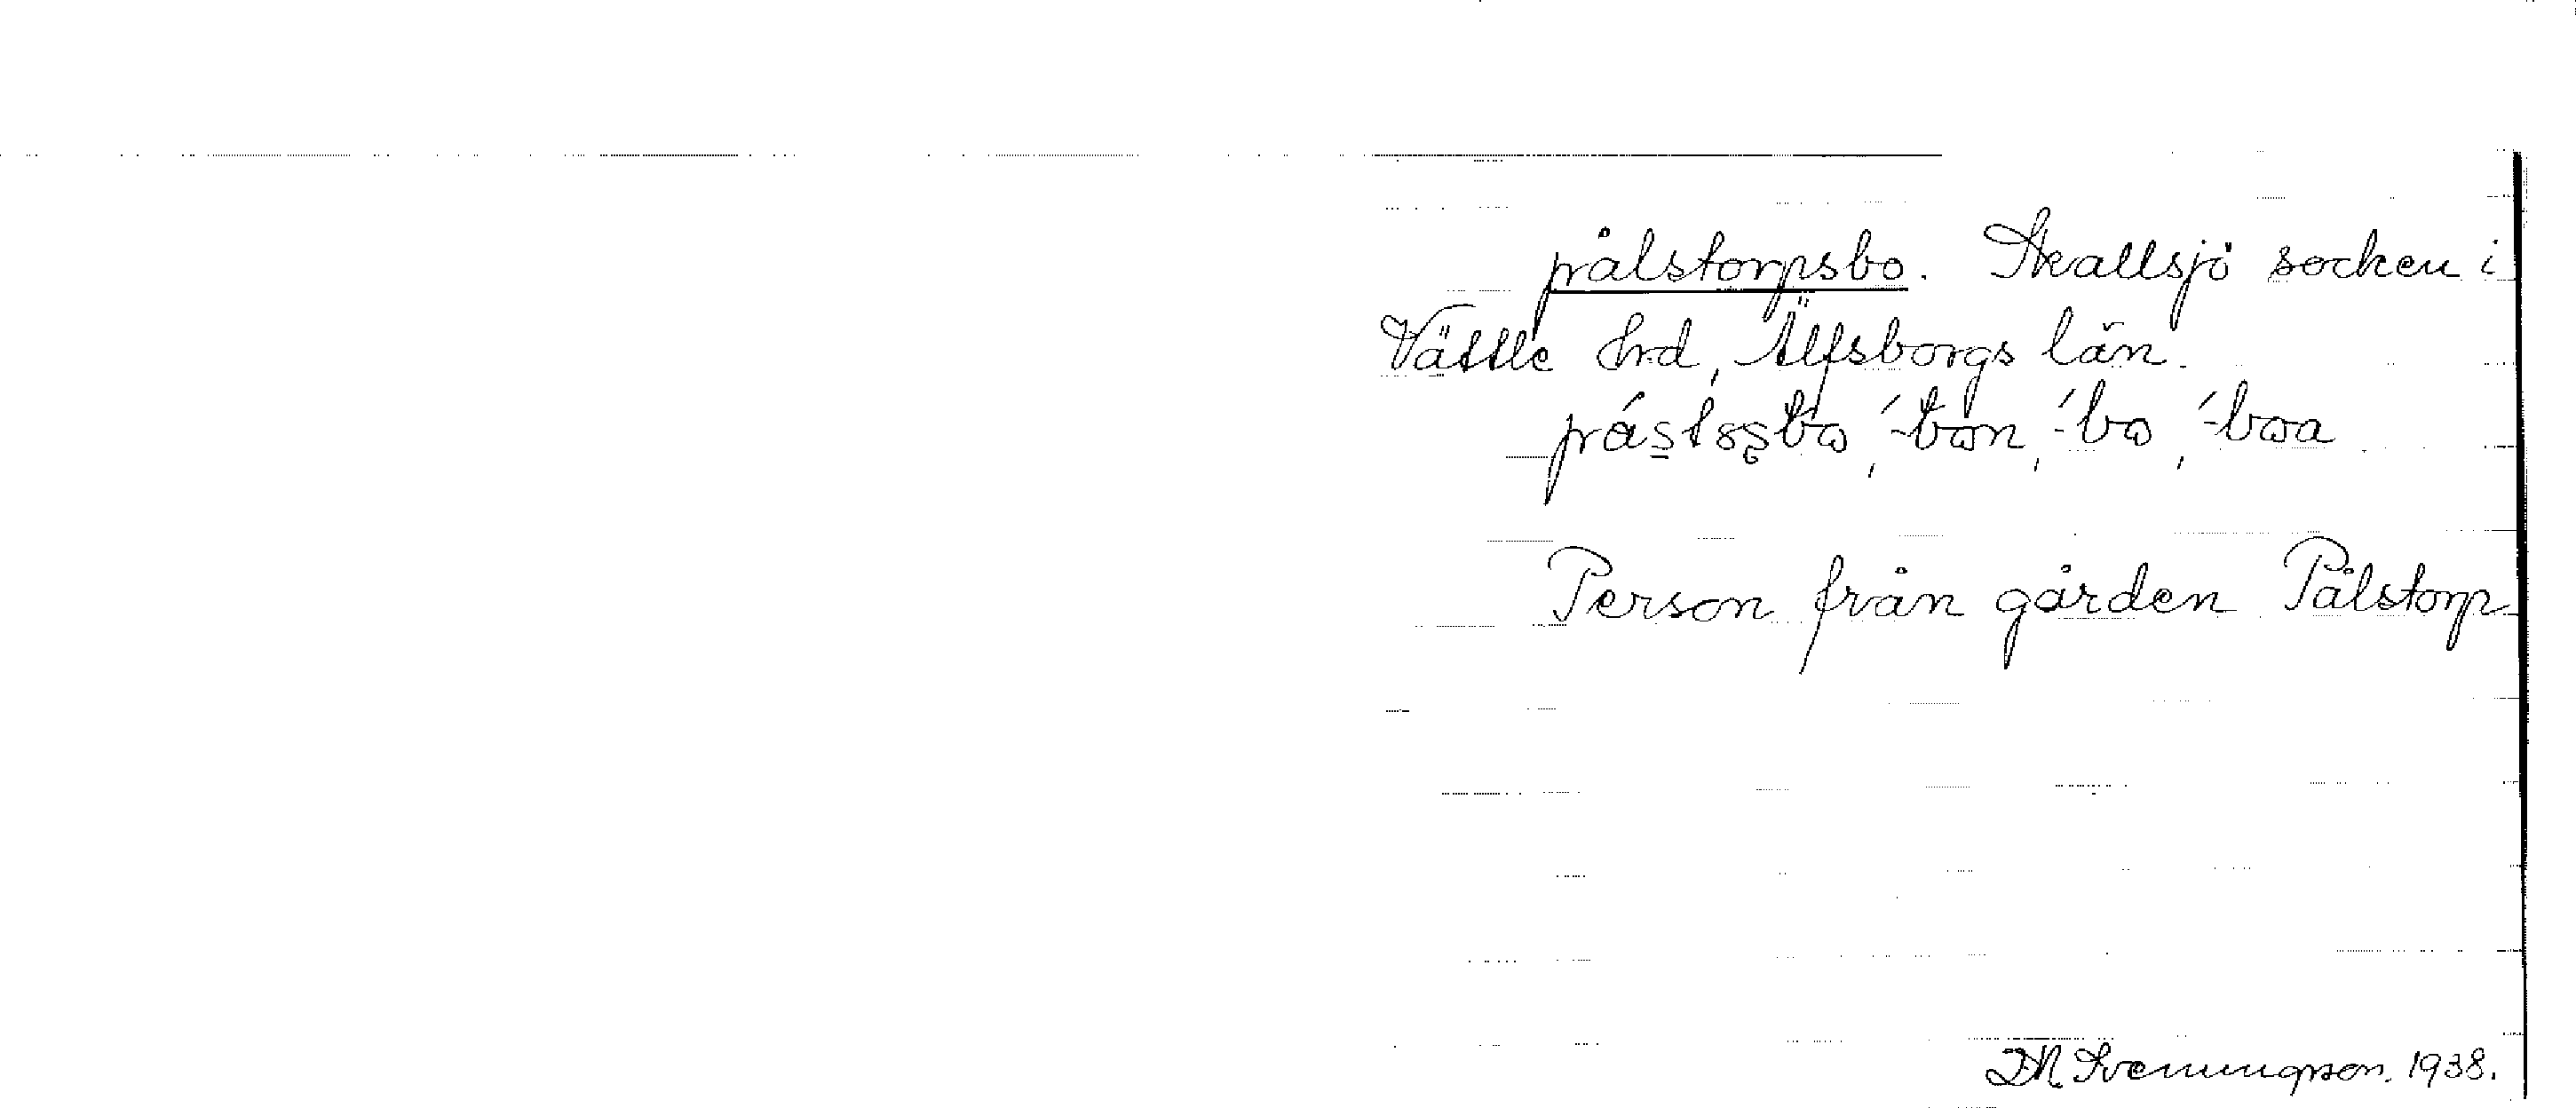 pålstorpsbo. Skallsjö socken i
Vättle hrd, Älfsborgs län.
-bon, -bo, -boa
Person från gården Pålstorp
Svenungsson. 1938.